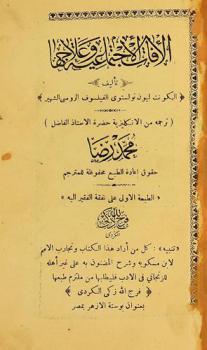 الآفات الاجتماعية وعلاجها
تأليف
الكونت ليون تولستوى الفيلسوف الروسى الشهير
( ترجمه من الانكليزية حضرة الاستاذ الفاضل )
محمد رضا
حقوق اعادة الطبع محفوظة للمترجم
« الطبعة الاولى على نفقة الفقير اليه »
فرج الله زكى
الكردى
« تنبيه » : كل من أراد هذا الكتاب وتجارب الامم
لابن مسكويه وشرح المضنون به على غير أهله
للزنجانى فى الادب فليطلبها من ملتزم طبعها
( فرج الله زكى الكردى )
بعنوان بوستة الازهر بمصر